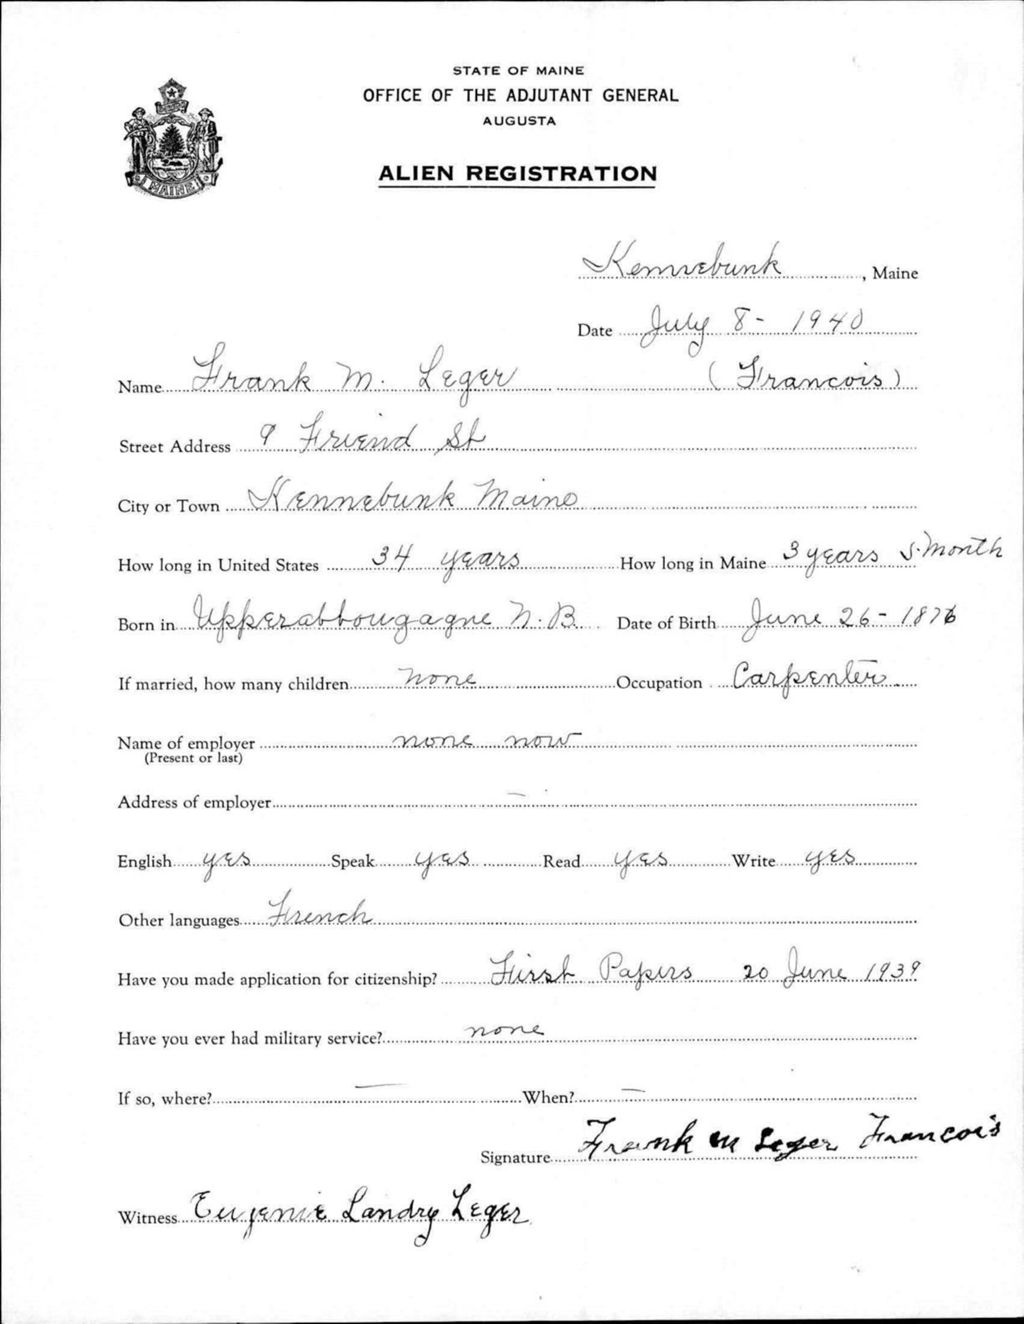 STATE OF MAINE
OFFICE OF THE ADJUTANT GENERAL
AUGUSTA
ALIEN REGISTRATION
MAINE
Kennebunk, Maine
Date July 8 - 1940
Name Frank M. Leger (Francois)
Street Address 9 Friend St
City or Town Kennebunk Maine
How long in United States 34 years How long in Maine 3 years 5 month
Born in Upperabbougagne N.B. Date of Birth June 26 - 1876
If married, how many children none Occupation Carpenter
Name of employer none now
(Present or last)
Address of employer —
English yes Speak yes Read yes Write yes
Other languages French
Have you made application for citizenship? First Papers 20 June 1939
Have you ever had military service? none
If so, where? — When? —
Signature Frank M Leger Francois
Witness Eugenie Landry Leger